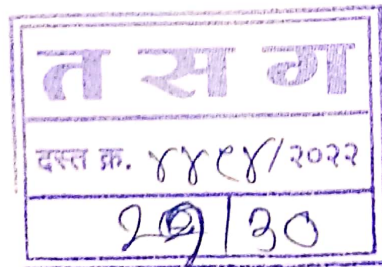 त स ग
दस्त क्र. ४४९४/२०२२
३०